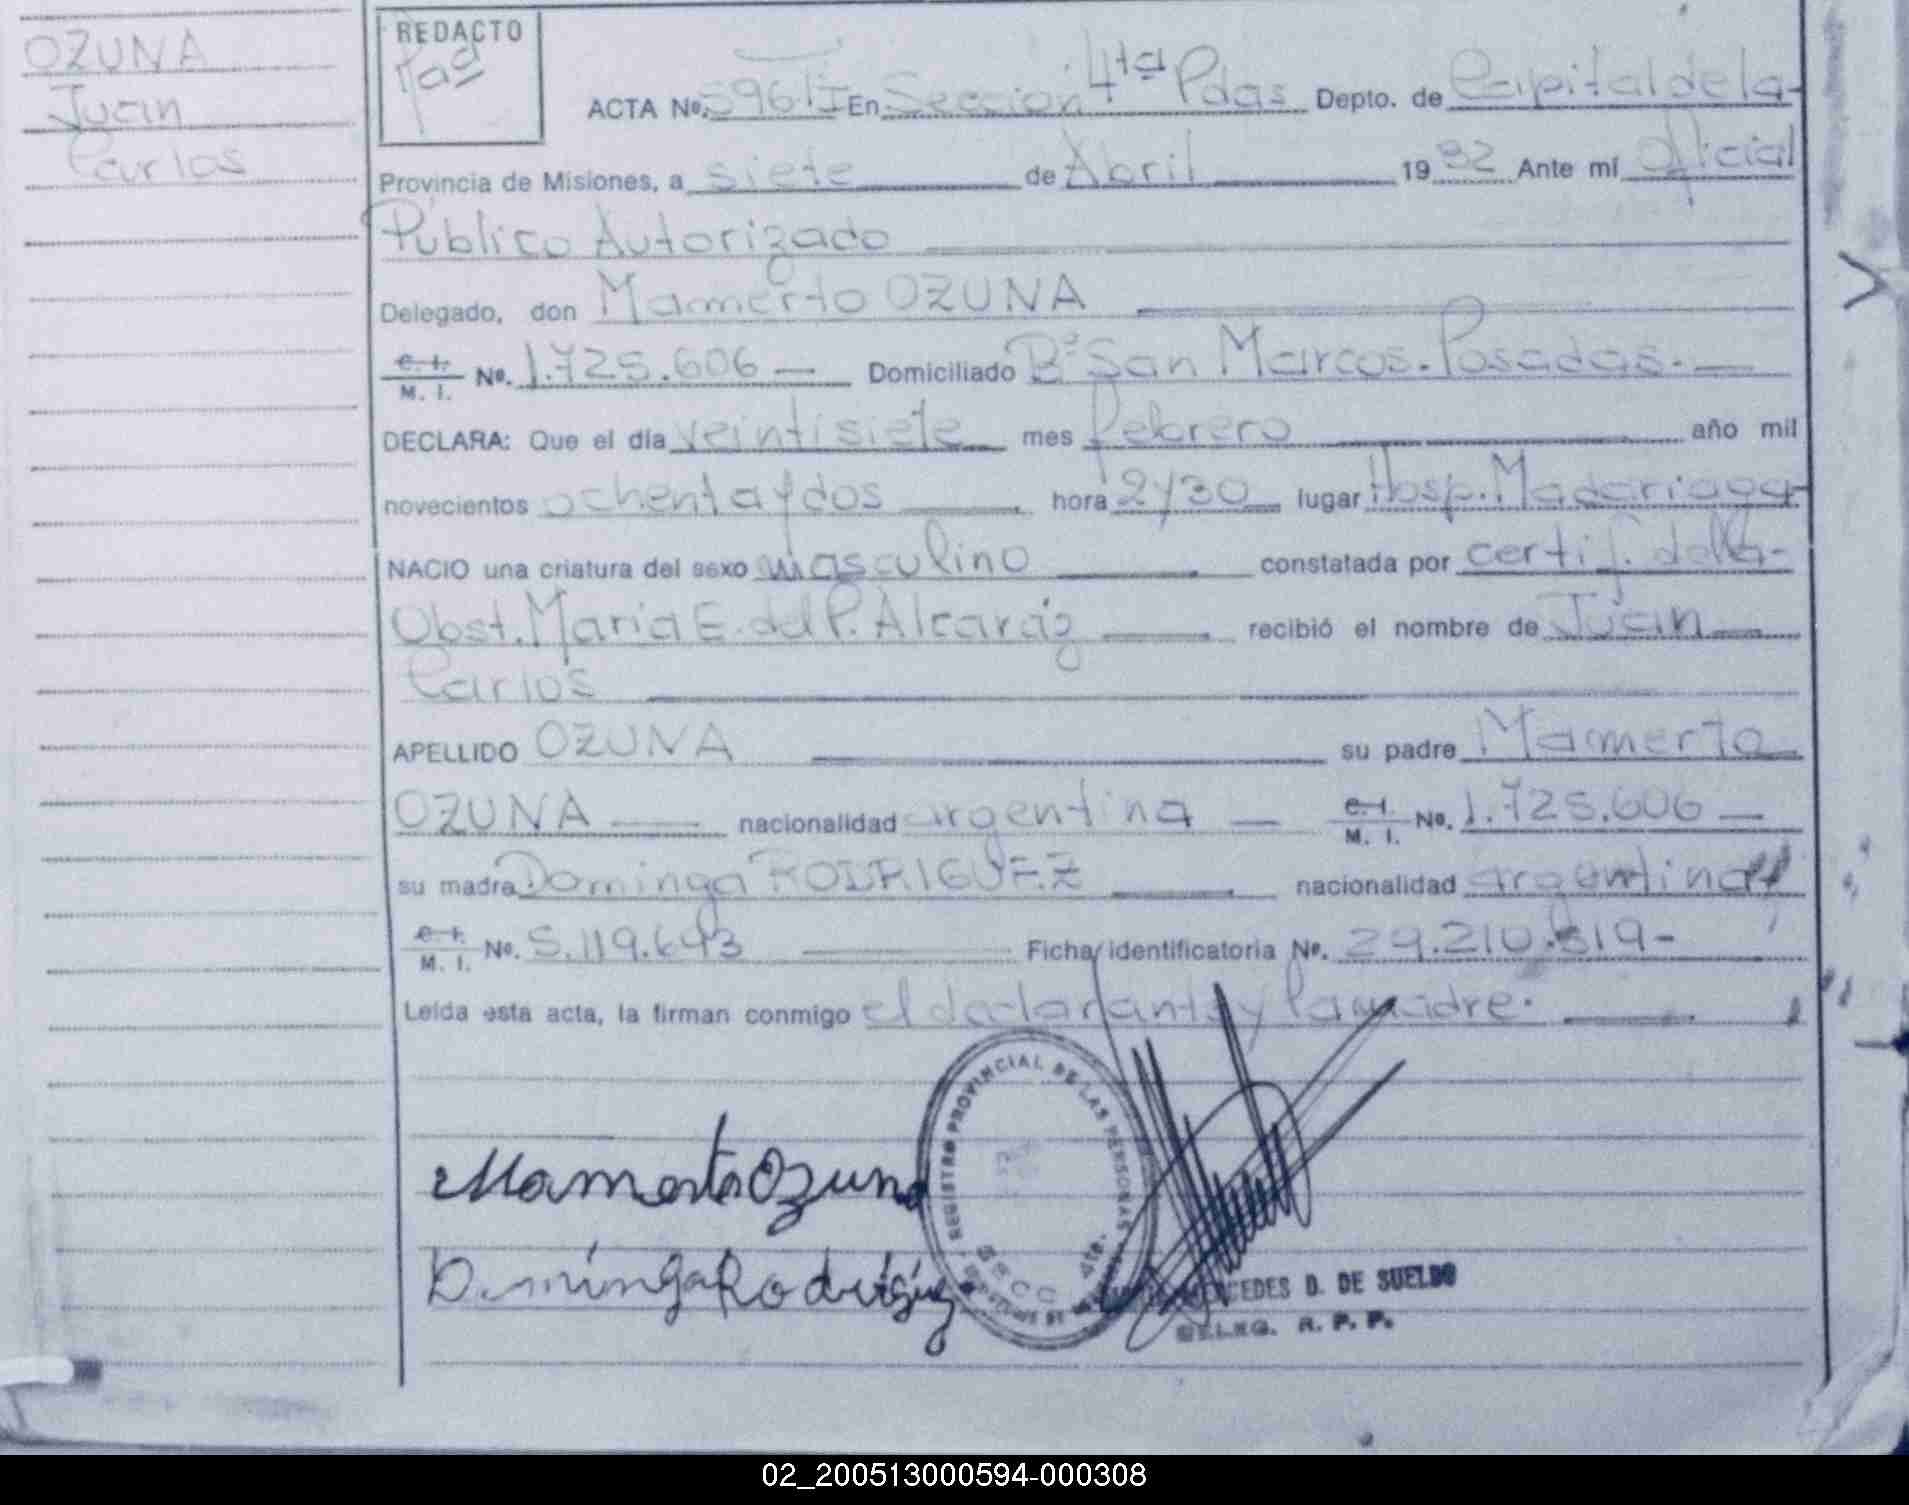 OZUNA
Juan
Carlos
REDACTO
ACTA Nº. 596.TI En Sección 4ta Pdas Depto. de Capital de la
Provincia de Misiones, a siete de Abril 1982 Ante mí Oficial
Público Autorizado
Delegado, don Mamerto OZUNA
C. I. M. I. Nº. 1.725.606 Domiciliado Bº San Marcos. Posadas.
DECLARA: Que el día veintisiete mes febrero año mil
novecientos ochenta y dos hora 2y30 lugar Hosp. Madariaga
NACIO una criatura del sexo masculino constatada por certif. de la
Obst. María E. del P. Alcaráz recibió el nombre de Juan
Carlos
APELLIDO OZUNA su padre Mamerto
OZUNA nacionalidad argentina C. I. M. I. Nº. 1.725.606
su madre Dominga RODRIGUEZ nacionalidad argentina
C. I. M. I. Nº. 5.119.643 Ficha identificatoria Nº. 29.210.819-
Leída esta acta, la firman conmigo el declarante y la madre.
REGISTRO PROVINCIAL DE LAS PERSONAS
SECC 4ta.
Mamerto Ozuna
Dominga Rodriguez
MERCEDES D. DE SUELDO
DELEG. R. P. P.
02_200513000594-000308